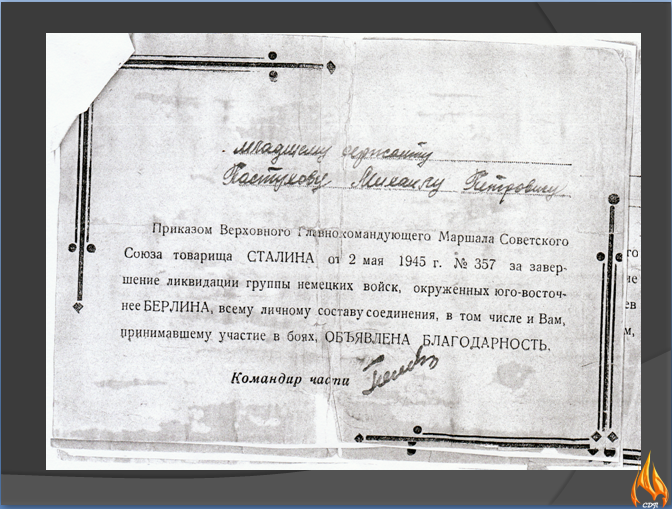 младшему сержанту
Пастухову Михаилу Петровичу
Приказом Верховного Главнокомандующего Маршала Советского
Союза товарища СТАЛИНА от 2 мая 1945 г. № 357 за завер-
шение ликвидации группы немецких войск, окруженных юго-восточ-
нее БЕРЛИНА, всему личному составу соединения, в том числе и Вам,
принимавшему участие в боях, ОБЪЯВЛЕНА БЛАГОДАРНОСТЬ.
Командир части
СДП